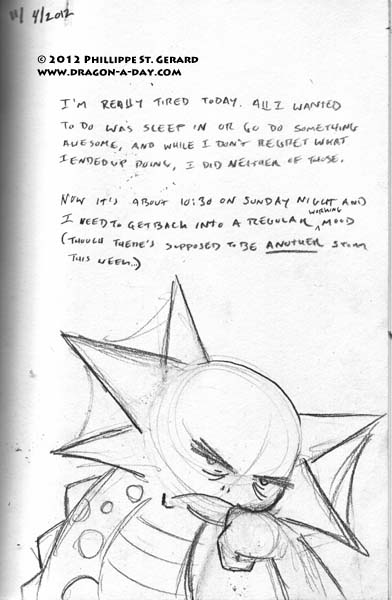 11/4/2012
© 2012 Phillippe St. Gerard
www.dragon-a-day.com
I'M REALLY TIRED TODAY. ALL I WANTED
TO DO WAS SLEEP IN OR GO DO SOMETHING
AWESOME, AND WHILE I DON'T REGRET WHAT
I ENDED UP DOING, I DID NEITHER OF THOSE.
NOW IT'S ABOUT 10:30 ON SUNDAY NIGHT AND
I NEED TO GET BACK INTO A REGULAR WORKING MOOD
(THOUGH THERE'S SUPPOSED TO BE ANOTHER STORM
THIS WEEK...)